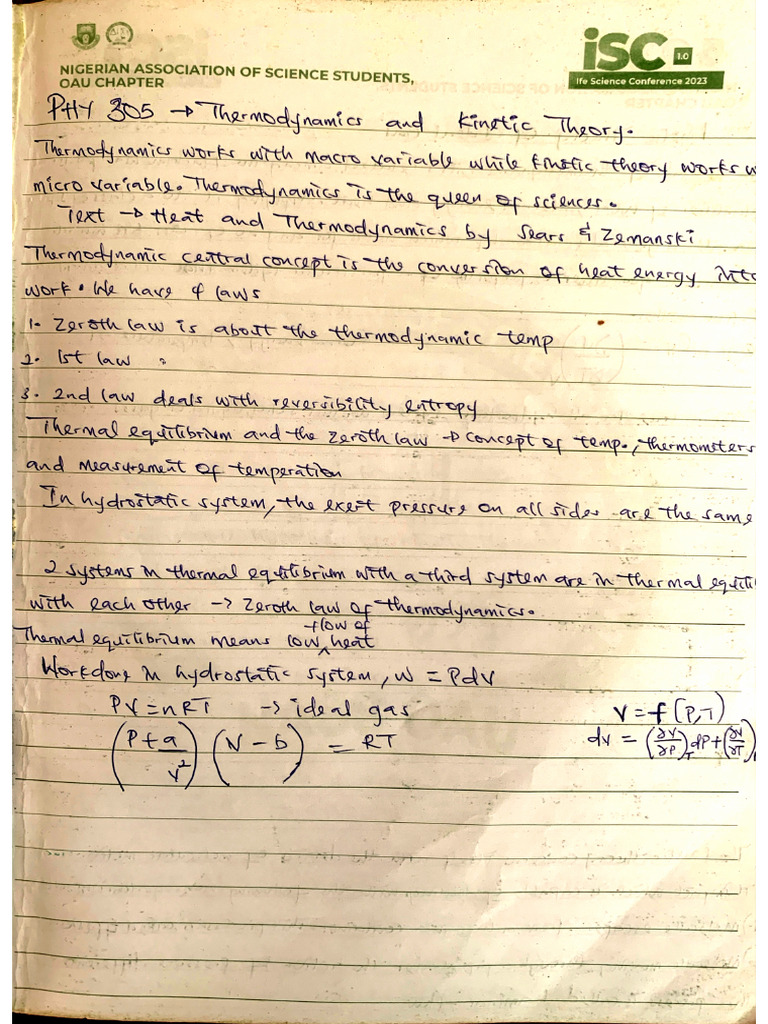 iSC 1.0
NIGERIAN ASSOCIATION OF SCIENCE STUDENTS,
OAU CHAPTER
Ife Science Conference 2023
PHY 305 → Thermodynamics and Kinetic Theory.
Thermodynamics works with macro variable while kinetic theory works w
micro variable. Thermodynamics is the queen of sciences.
Text → Heat and Thermodynamics by Sears & Zemanski
Thermodynamic central concept is the conversion of heat energy into
work. We have 4 laws
1. Zeroth law is about the thermodynamic temp
2. 1st law :
3. 2nd law deals with reversibility entropy
Thermal equilibrium and the zeroth law → concept of temp., thermometers
and measurement of temperation
In hydrostatic system, the exert pressure on all sides are the same
2 systems in thermal equilibrium with a third system are in thermal equili
with each other → Zeroth law of thermodynamics.
Thermal equilibrium means low flow of heat
Workdone in hydrostatic system, w = PdV
PV = nRT → ideal gas
V = f(P,T)
(P + a/v²) (V - b) = RT
dv = (∂V/∂P)_T dP + (∂V/∂T)